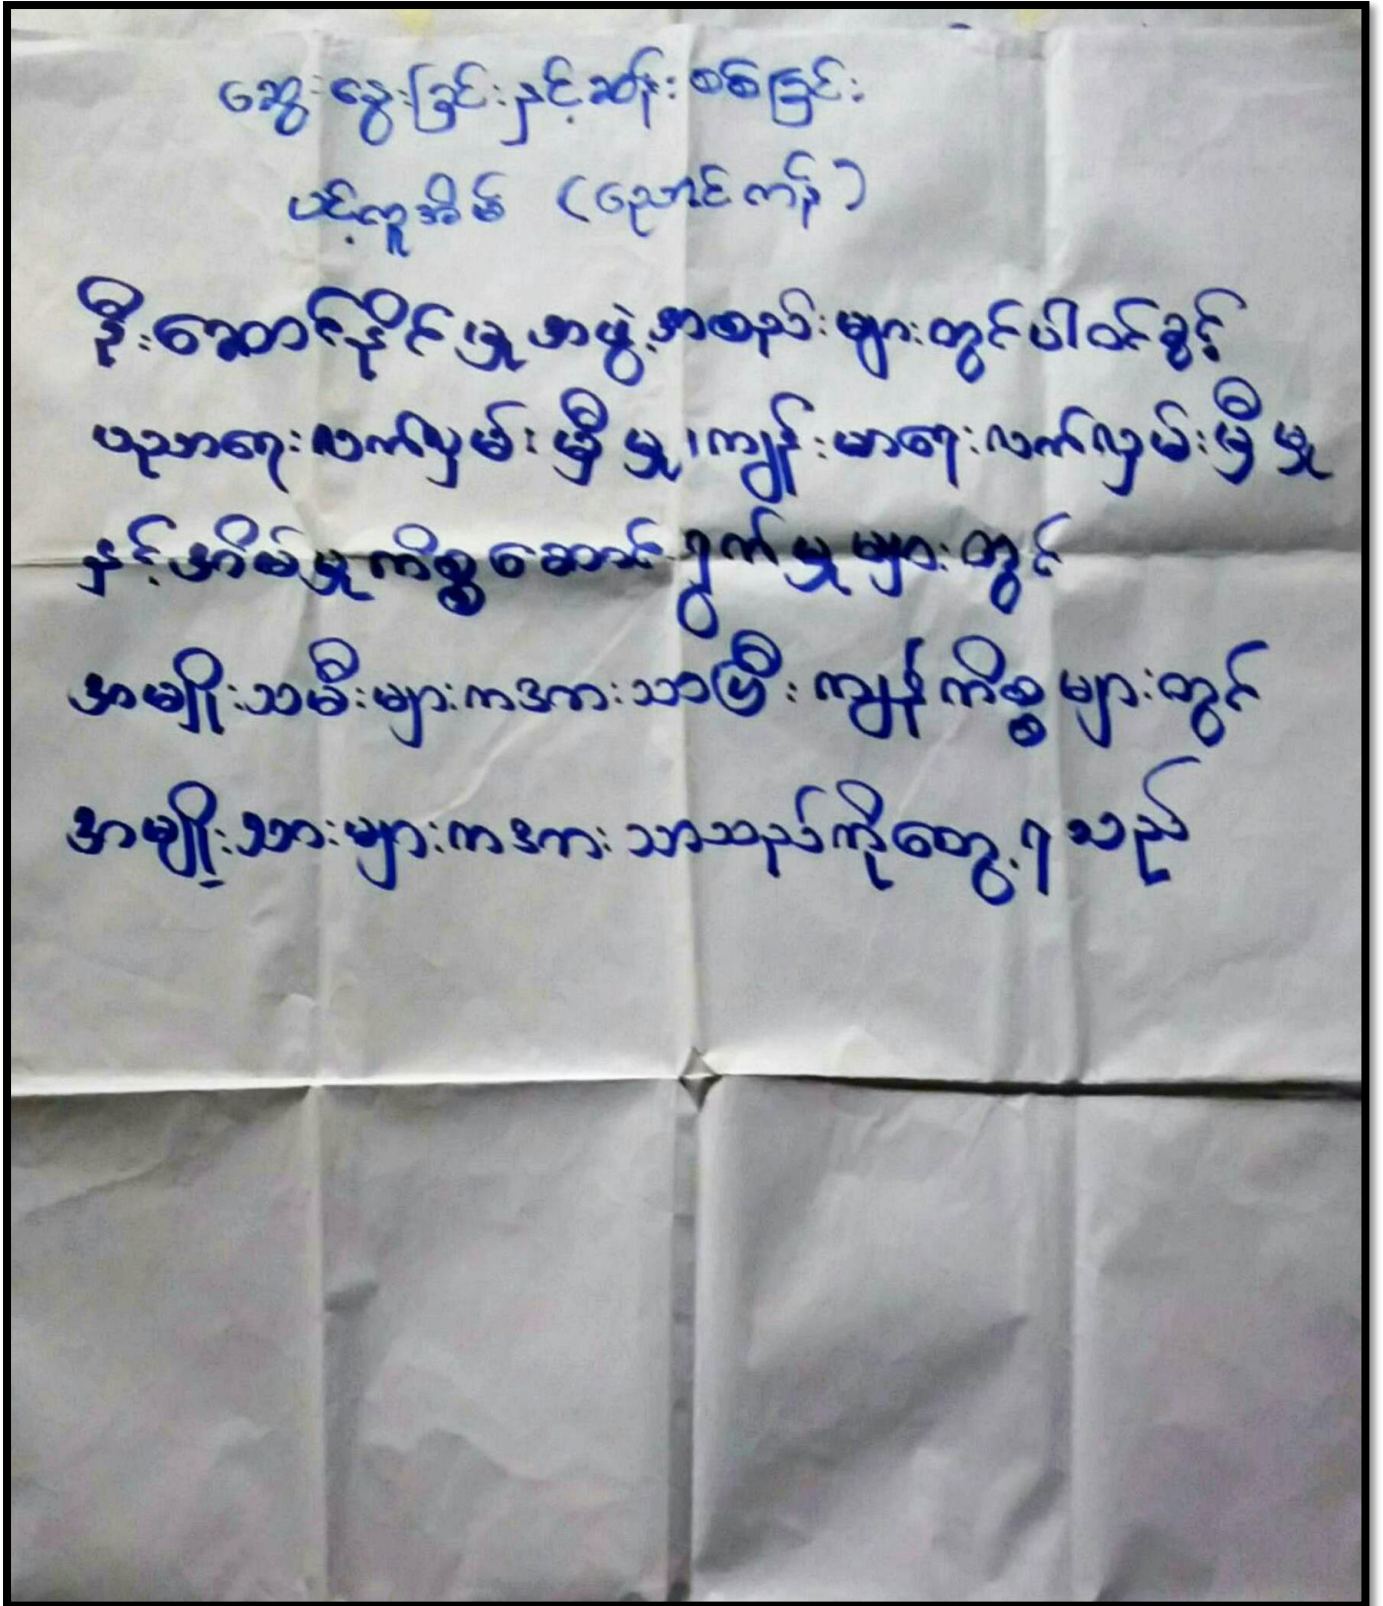 ဆွေးနွေးခြင်းနှင့်ဆန်းစစ်ခြင်း
ပင့်ကူအိမ် (ညောင်ကန်)
ဦးဆောင်နိုင်မှု အဖွဲ့အစည်းများတွင်ပါဝင်ခွင့်
ပညာရေးလက်လှမ်းမှီမှု၊ ကျန်းမာရေးလက်လှမ်းမှီမှု
နှင့်အိမ်မှုကိစ္စဆောင်ရွက်မှုများတွင်
အမျိုးသမီးများကအားသာပြီး ကျွန်ကိစ္စများတွင်
အမျိုးသားများကအားသာသည်ကိုတွေ့ရသည်